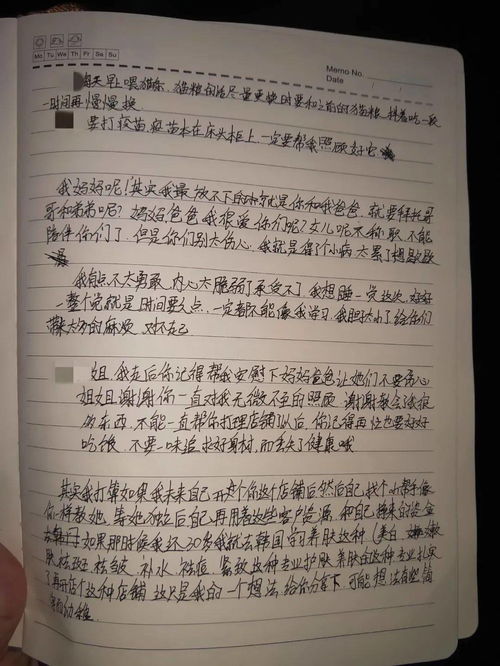 Mo Tu We Th Fr Sa Su
Memo No.
Date
每天早上喂猫条,猫粮的话尽量更换时要和之前的猫粮 拌着吃一段
时间再慢慢换
要打疫苗,疫苗本在床头柜上,一定要帮我照顾好它
我妈妈呢!其实我最放不下的 就是你和我爸爸,就要拜托哥
哥和弟弟呢?妈妈爸爸我很爱你们呢?女儿呢不称职,不能
陪伴你们了,但是你们别太伤心,我就是得了个小病太累了想歇歇
我有点不太勇敢,内心太脆弱了承受不了,我想睡一觉这次,好好
整个觉就是时间要久点,一定都不能像我学习,我胆太小了给你们
带来太多的麻烦,对不起
姐,我走后你记得帮我安慰下妈妈爸爸让她们不要伤心
姐姐谢谢你一直对我无微不至的照顾,谢谢教会了我很
多东西,不能一直帮你打理店铺了以后,你记得再忙也要好好
吃饭,不要一味追求好身材,而丢失了健康哦
其实我打算如果我未来自己开这个你这个店铺后然后自己找个小帮手像
你一样教她,等她独立后自己再用着这些客户资源,和自己 的资金
去 如果那时候我还30多我就去韩国的养肤这种(美白 嫩
肤 祛斑 祛皱 补水 祛痘 紧致这种专业护肤 养肤的这种专业
了再开店个这种店铺 这只是我的一个想法,给你分享下,可能想法有些
幼稚